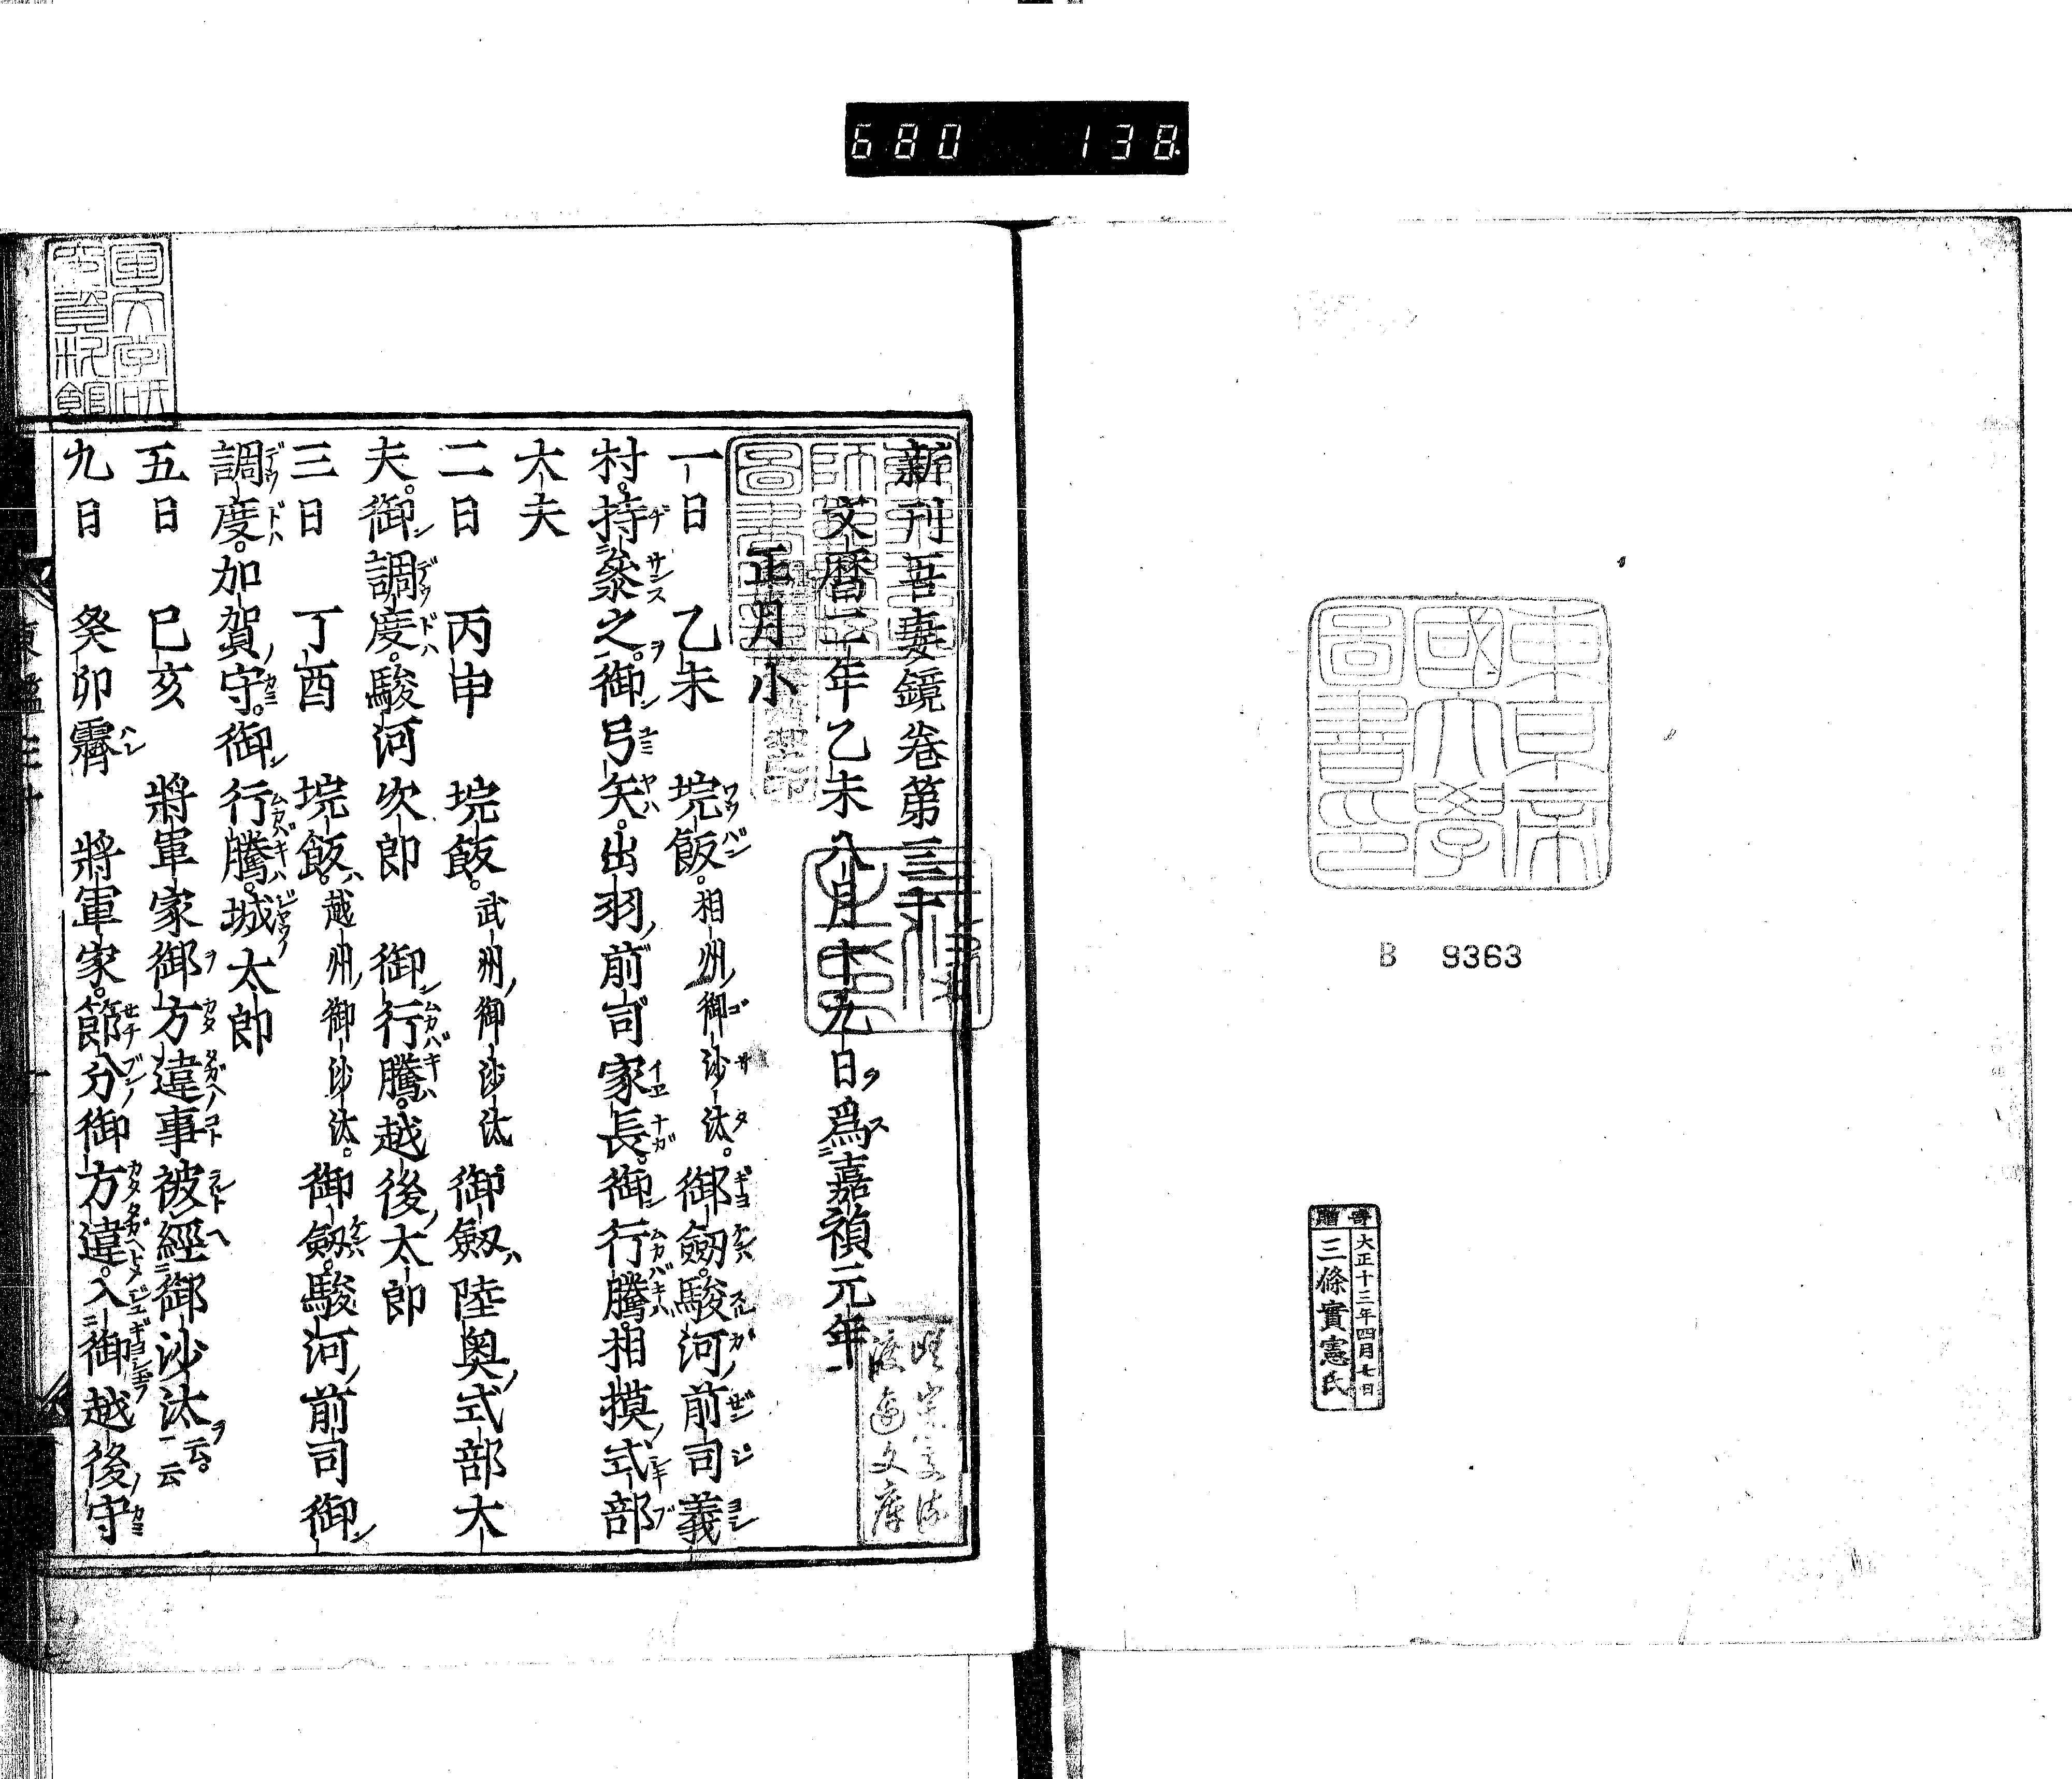 680 138
東京帝
國大學
圖書印
B 9363
寄贈
大正十三年四月七日
三條實憲氏
新刊吾妻鏡卷第三十
文暦二年乙未八月十九日爲嘉禎元年
正月小
一日 乙未 垸飯。相州御沙汰。御劔。駿河前司義
村。持參之。御弓矢。出羽前司家長。御行騰。相摸式部
大夫
二日 丙申 垸飯。武州御沙汰 御劔陸奥式部大
夫。御調度。駿河次郎 御行騰。越後太郎
三日 丁酉 垸飯。越州御沙汰。御劔。駿河前司御
調度。加賀守。御行騰。城太郎
五日 己亥 將軍家御方違事被經御沙汰云云。
九日 癸卯霽 將軍家。節分御方違。入御越後守